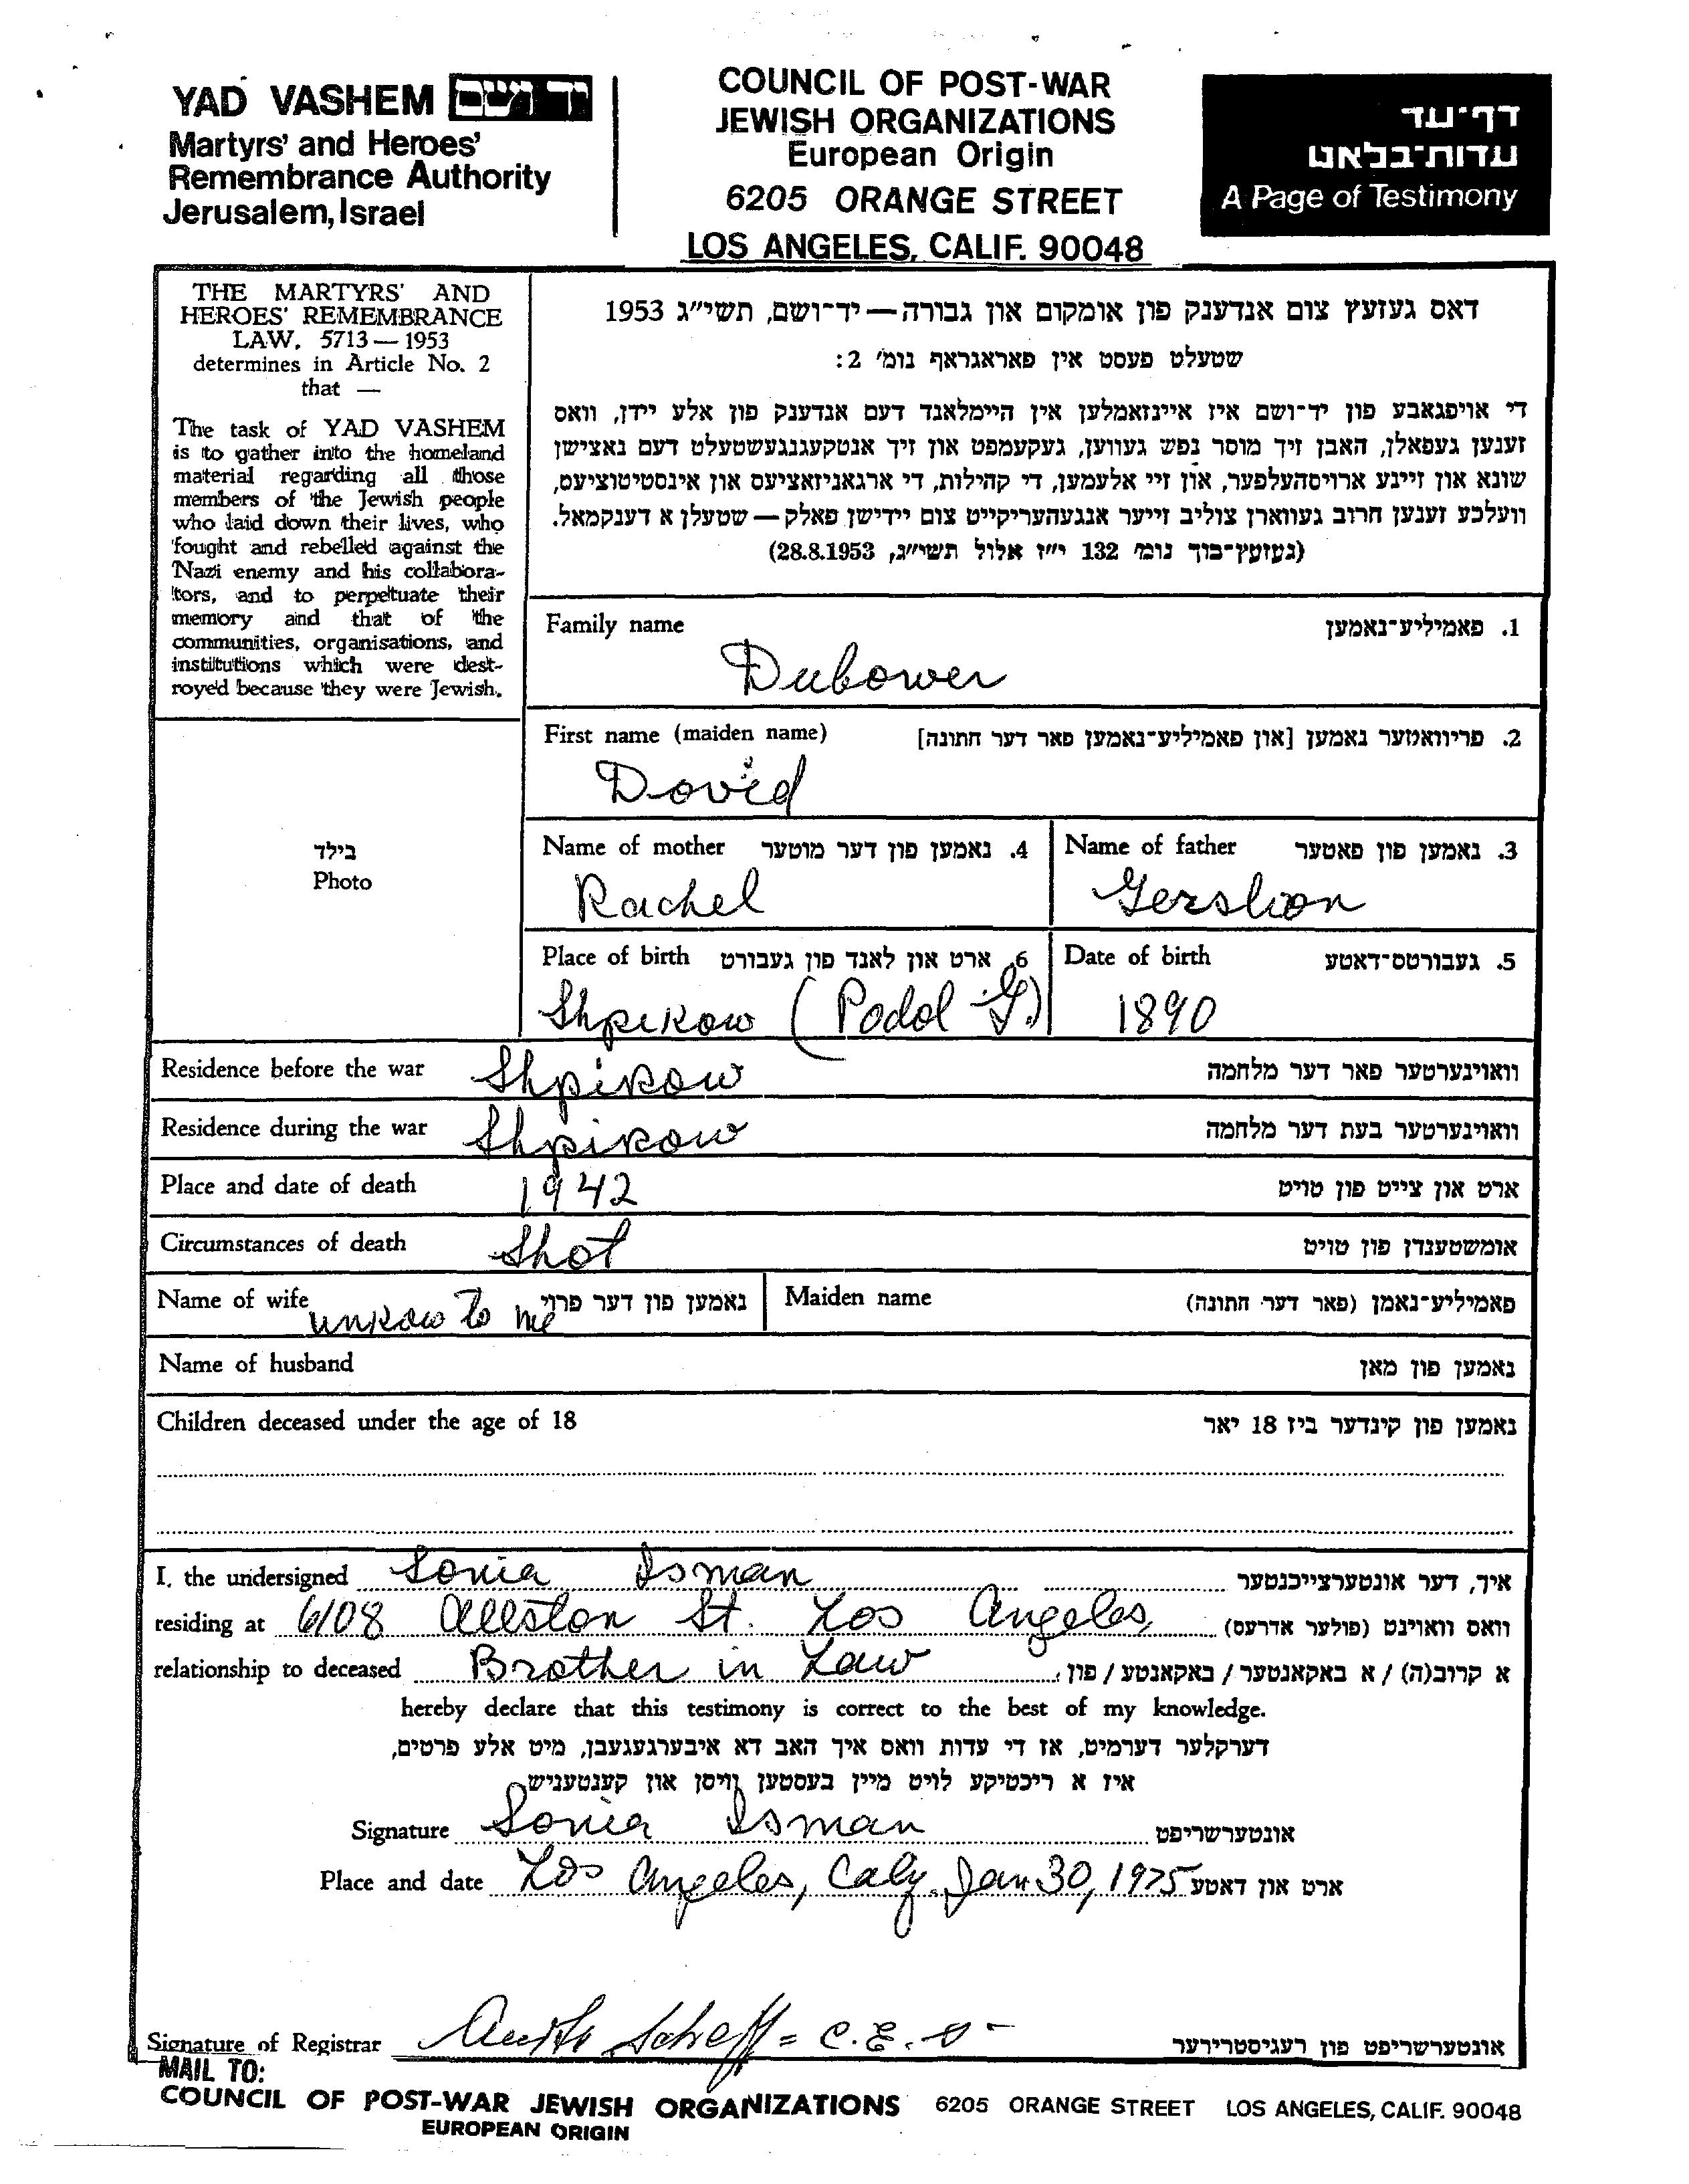 YAD VASHEM יד ושם
Martyrs' and Heroes'
Remembrance Authority
Jerusalem, Israel
COUNCIL OF POST-WAR
JEWISH ORGANIZATIONS
European Origin
6205 ORANGE STREET
LOS ANGELES, CALIF. 90048
דף-עד
עדות-בלאט
A Page of Testimony
THE MARTYRS' AND
HEROES' REMEMBRANCE
LAW, 5713—1953
determines in Article No. 2
that —
The task of YAD VASHEM
is to gather into the homeland
material regarding all those
members of the Jewish people
who laid down their lives, who
fought and rebelled against the
Nazi enemy and his collabora-
tors, and to perpetuate their
memory and that of the
communities, organisations, and
institutions which were dest-
royed because they were Jewish.
דאס געזעץ צום אנדענק פון אומקום און גבורה — יד-ושם, תשי"ג 1953
שטעלט פעסט אין פאראגראף נומ' 2:
די אויפגאבע פון יד-ושם איז איינזאמלען אין היימלאנד דעם אנדענק פון אלע יידן, וואס
זענען געפאלן, האבן זיך מוסר נפש געווען, געקעמפט און זיך אנטקעגנגעשטעלט דעם נאצישן
שונא און זיינע ארויסהעלפער, און זיי אלעמען, די קהילות, די ארגאניזאציעס און אינסטיטוציעס,
וועלכע זענען חרוב געווארן צוליב זייער אנגעהעריקייט צום יידישן פאלק — שטעלן א דענקמאל.
(געזעץ-בוך נומ' 132 י"ז אלול תשי"ג, 28.8.1953)
Family name 1. פאמיליע-נאמען
Dubower
First name (maiden name) 2. פריוואטער נאמען [און פאמיליע-נאמען פאר דער חתונה]
Dovid
Name of mother 4. נאמען פון דער מוטער Name of father 3. נאמען פון פאטער
Rachel Gershon
Place of birth 6. ארט און לאנד פון געבורט Date of birth 5. געבורטס-דאטע
Shpikow (Podol G.) 1890
בילד
Photo
Residence before the war Shpikow וואוינערטער פאר דער מלחמה
Residence during the war Shpikow וואוינערטער בעת דער מלחמה
Place and date of death 1942 ארט און צייט פון טויט
Circumstances of death Shot אומשטענדן פון טויט
Name of wife unkow to me נאמען פון דער פרוי Maiden name פאמיליע-נאמן (פאר דער חתונה)
Name of husband נאמען פון מאן
Children deceased under the age of 18 נאמען פון קינדער ביז 18 יאר
I, the undersigned Sonia Isman איך, דער אונטערצייכנטער
residing at 6108 Allston St. Los Angeles, וואס וואוינט (פולער אדרעס)
relationship to deceased Brother in Law א קרוב(ה) / א באקאנטער / באקאנטע / פון
hereby declare that this testimony is correct to the best of my knowledge.
דערקלער דערמיט, אז די עדות וואס איך האב דא איבערגעגעבן, מיט אלע פרטים,
איז א ריכטיקע לויט מיין בעסטען וויסן און קענטעניש
Signature Sonia Isman אונטערשריפט
Place and date Los Angeles, Caly. Jan 30, 1975 ארט און דאטע
Signature of Registrar = C.E.O - אונטערשריפט פון רעגיסטרירער
MAIL TO:
COUNCIL OF POST-WAR JEWISH ORGANIZATIONS 6205 ORANGE STREET LOS ANGELES, CALIF. 90048
EUROPEAN ORIGIN